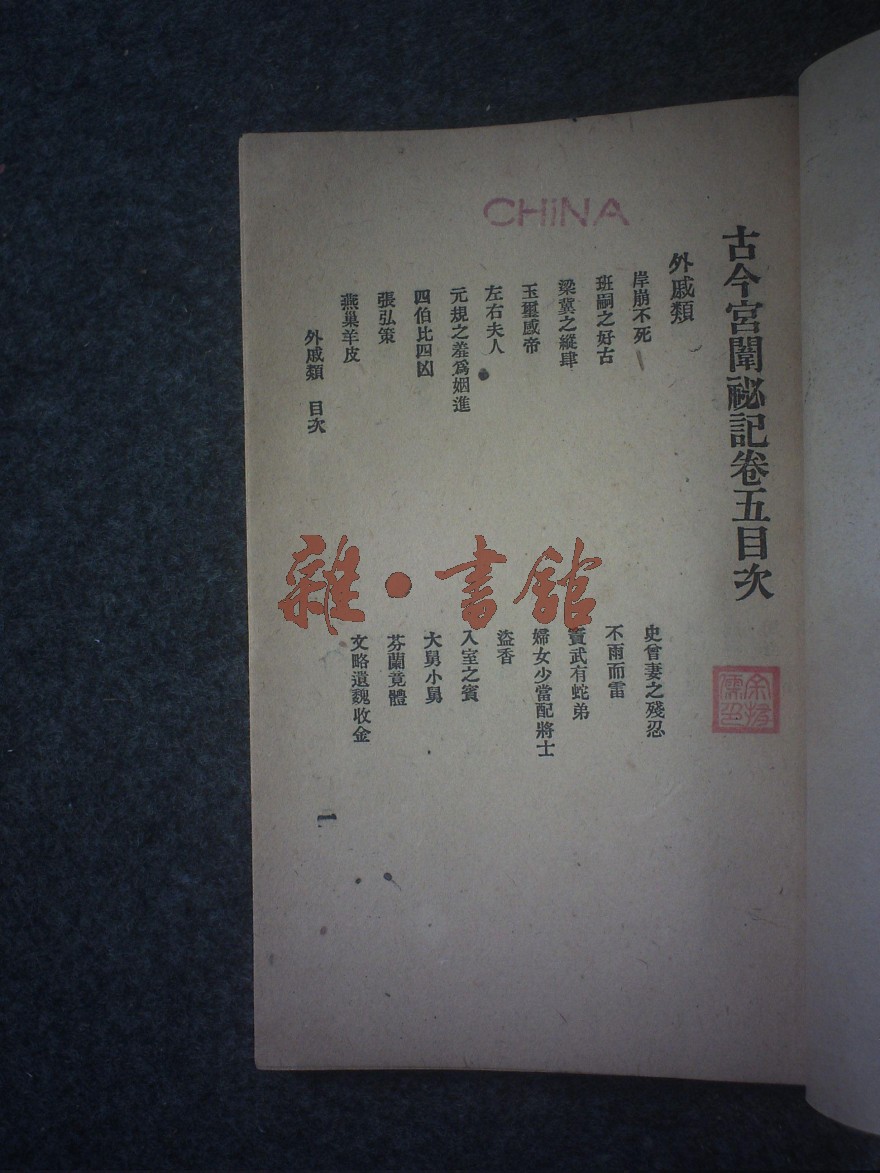 CHiNA
古今宮闈祕記卷五目次
外戚類
岸崩不死
史曾妻之殘忍
班嗣之好古
不雨而雷
梁冀之縱肆
竇武有蛇弟
玉璽感帝
婦女少當配將士
左右夫人
盜香
元規之羞爲姻進
入室之賓
四伯比四凶
大舅小舅
張弘策
芬蘭竟體
燕巢羊皮
文略遺魏收金
外戚類 目次 一
雜·書館